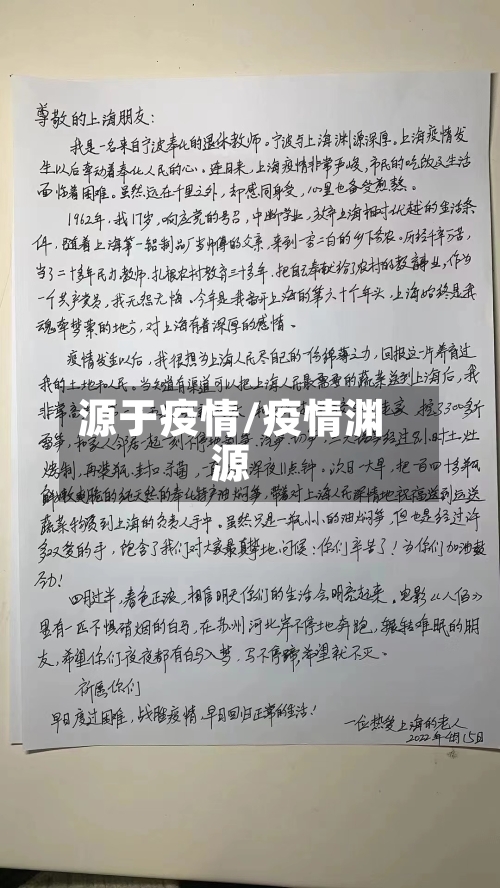 尊敬的上海朋友：
我是一名来自宁波奉化的退休教师。宁波与上海渊源深厚。上海疫情发
生以后牵动着奉化人民的心。连日来，上海疫情非常严峻，市民的吃饭生活
面临着困难。虽然远在千里之外，却感同身受，心里也备受煎熬。
1962年，我17岁，响应党的号召，中断学业，放弃上海相对优越的生活条
件，随着上海第一铝制品厂当师傅的父亲，来到一穷二白的乡下务农。历经千辛万苦，
当了二十多年民办教师，扎根农村教育三十多年，把自己奉献给了农村的教育事业，作为
一个共产党员，我无怨无悔。今年是我离开上海的第六十个年头，上海始终是我
魂牵梦萦的地方，对上海有着深厚的感情。
疫情发生以后，我很想为上海人民尽自己的一份绵薄之力，回报这片养育过
我的土地和人民。当知道有渠道可以把上海人民最需要的蔬菜送到上海后，我
非常
挖了300多斤
源于疫情/疫情渊
源
雷笋，和家人邻居一起一刻不停地
经过
时土灶
烧制，再装瓶、封口、杀菌，
深夜11点钟。次日一大早，把一百四十多瓶
的纯天然的奉化特产油焖笋，带着对上海人民深情地祝福送到运送
蔬菜物资到上海的负责人手中。虽然只是一瓶小小的油焖笋，但也是经过许
多双爱的手，饱含了我们对大家最真挚地问候：你们辛苦了！为你们加油鼓
劲！
四月过半，春色正浓，相信明天你们的生活会明亮起来。电影《八佰》
里有一匹不惧硝烟的白马，在苏州河北岸不停地奔跑，辗转难眠的朋
友，希望你们夜夜都有白马入梦，马不停蹄，希望就不灭。
祈愿你们
早日度过困难，战胜疫情，早日回归正常的生活！
一位热爱上海的老人
2022年4月15日